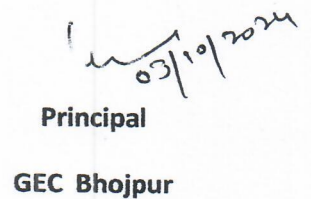 03/10/2024
Principal
GEC Bhojpur